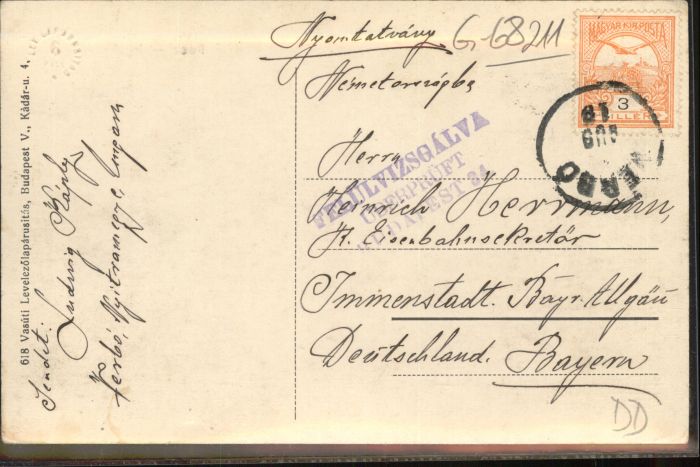 618 Vasúti Levelezőlapárusitás, Budapest V., Kádár-u. 4.
Sendet:
Ludwig
Verbó, Nyitramegye, Ungarn
Nyomtatvány
G. 68211
Németországba
MAGYAR KIR. POSTA
3
FILLÉR
VERBÓ
AUG
FELÜLVIZSGÁLVA
ÜBERPRÜFT
BUDAPEST 34
Herrn
Heinrich Herrmann,
K. Eisenbahnsekretär
Immenstadt. Bayr. Allgäu
Deutschland. Bayern
DD